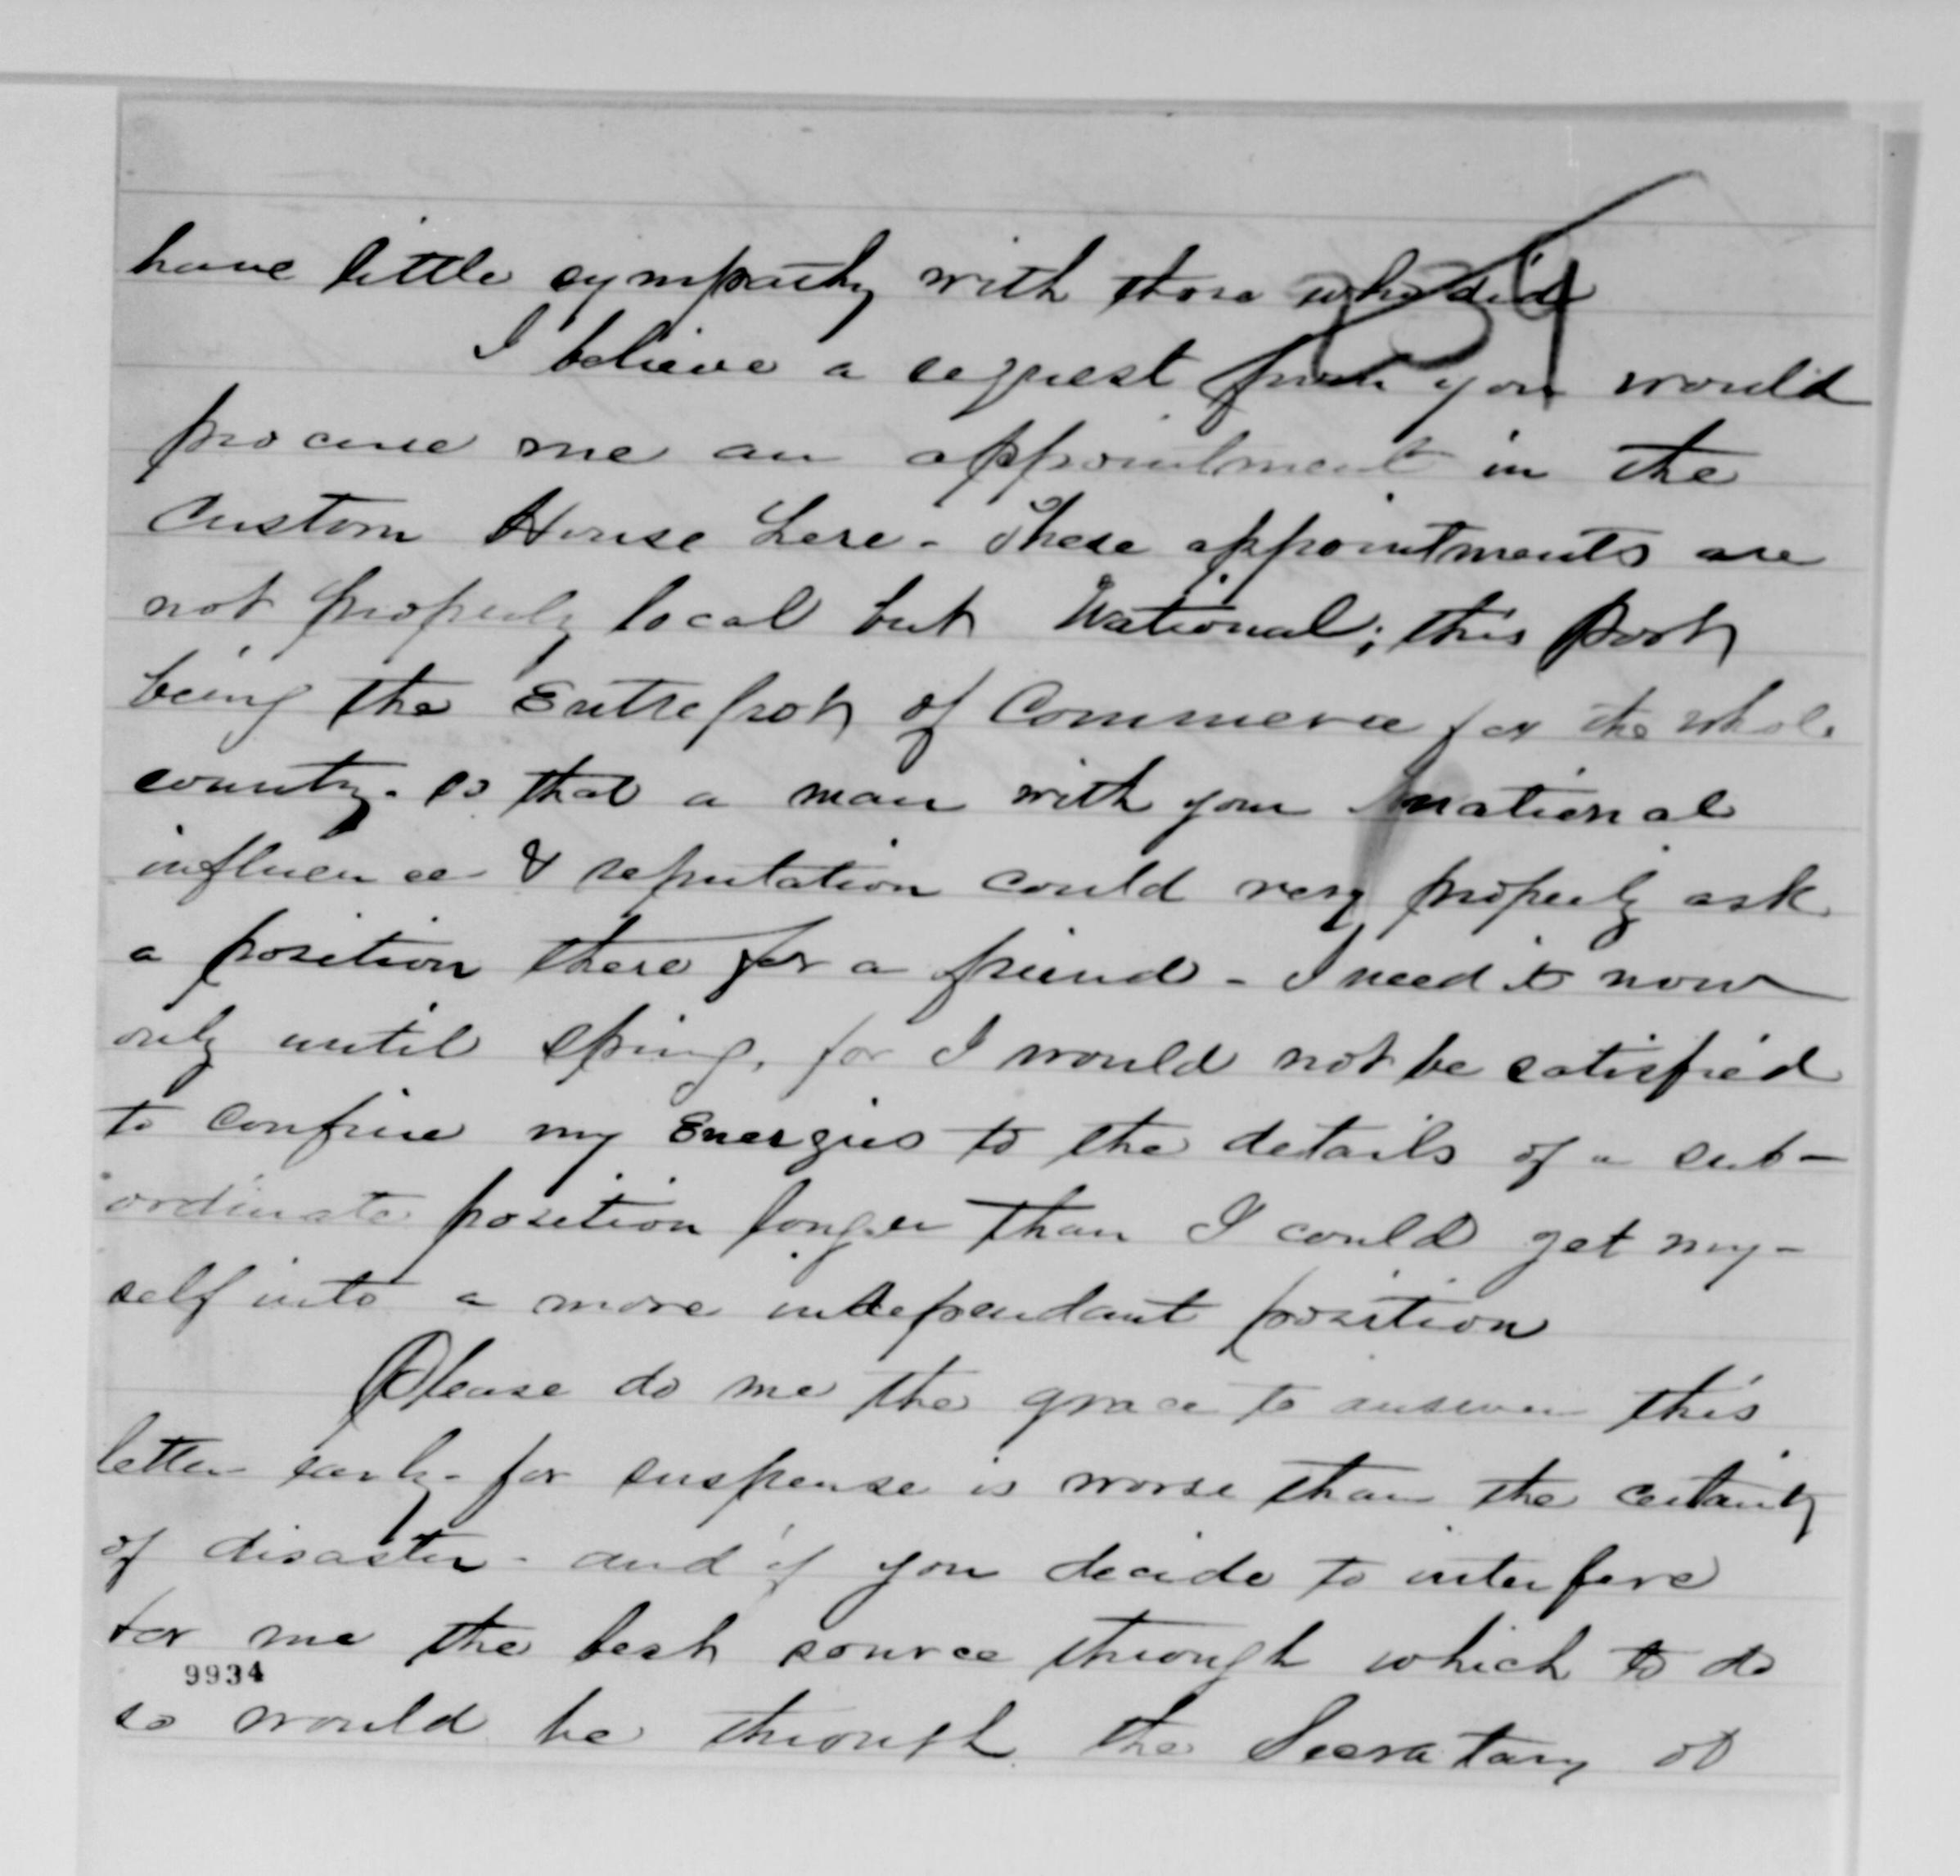 have little sympathy with those who did
234
I believe a request from you would
procure me an appointment in the
Custom House here - These appointments are
not properly local but National; this Port
being the Entrepot of Commerce for the whole
country. so that a man with your national
influence & reputation could very properly ask
a position there for a friend - I need it now
only until Spring, for I would not be satisfied
to confine my Energies to the details of a sub-
ordinate position longer than I could get my-
self into a more independant position
Please do me the grace to answer this
letter early - for suspense is worse than the certainty
of disaster - and if you decide to interfere
for me the best source through which to do
9934
so would be through the Secretary of